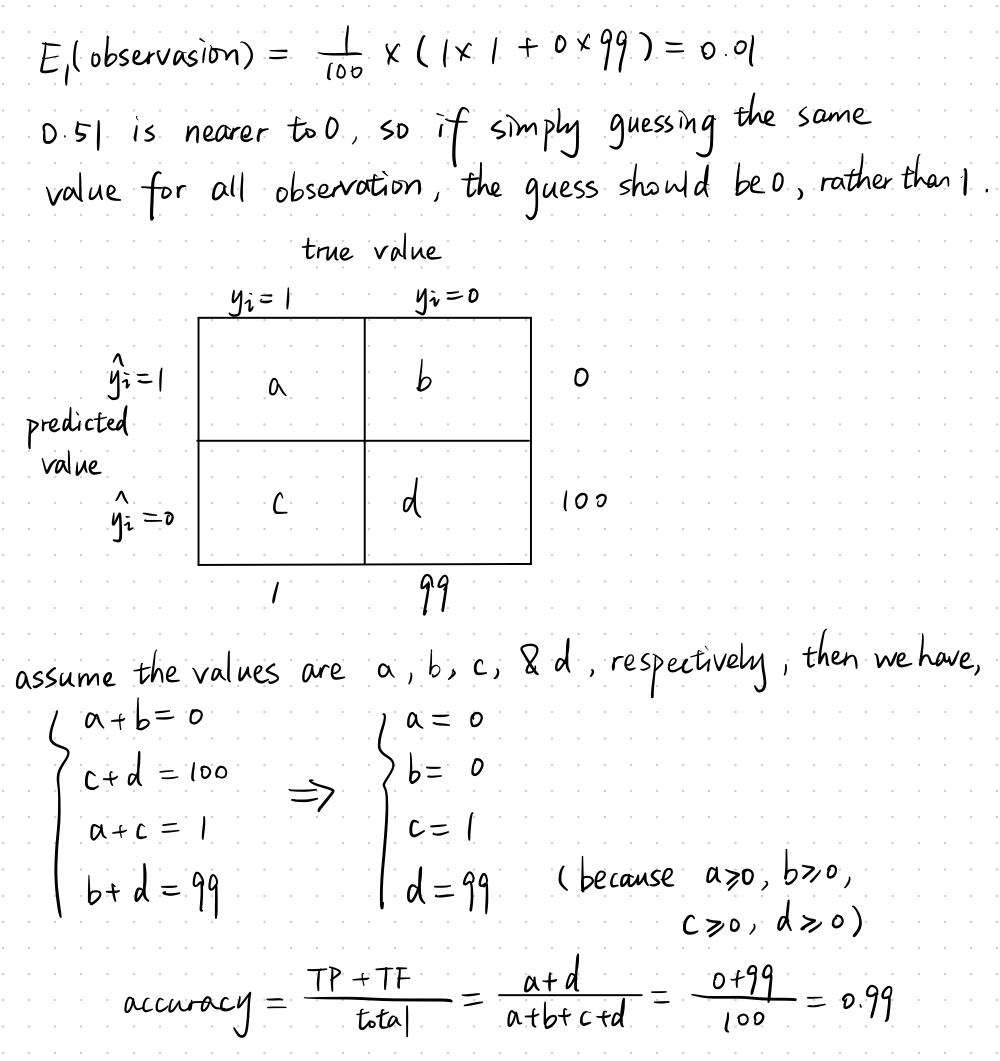 E₁(observasion) = 1/100 × (1×1 + 0×99) = 0.01
0.51 is nearer to 0, so if simply guessing the same
value for all observation, the guess should be 0, rather than 1.
true value
yᵢ=1 yᵢ=0
ŷᵢ=1 a b 0
predicted
value
ŷᵢ=0 c d 100
1 99
assume the values are a, b, c, & d, respectively, then we have,
{ a+b=0 { a=0
c+d=100 ⇒ b=0
a+c=1 c=1
b+d=99 d=99 (because a⩾0, b⩾0,
c⩾0, d⩾0)
accuracy = (TP+TF)/total = (a+d)/(a+b+c+d) = (0+99)/100 = 0.99